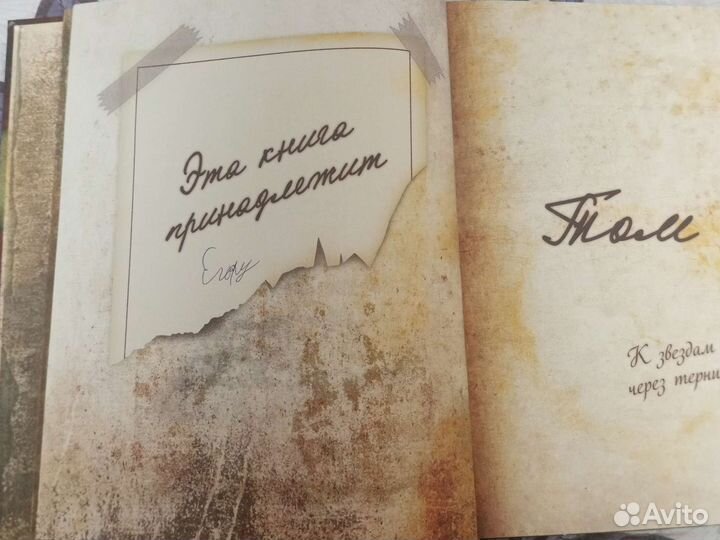 Эта книга
принадлежит
Егору
Том
К звездам
через терни
Avito